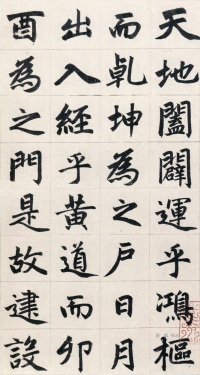 天地闔闢運乎鴻樞
而乹坤為之户日月
出入經乎黃道而卯
酉為之門是故建設